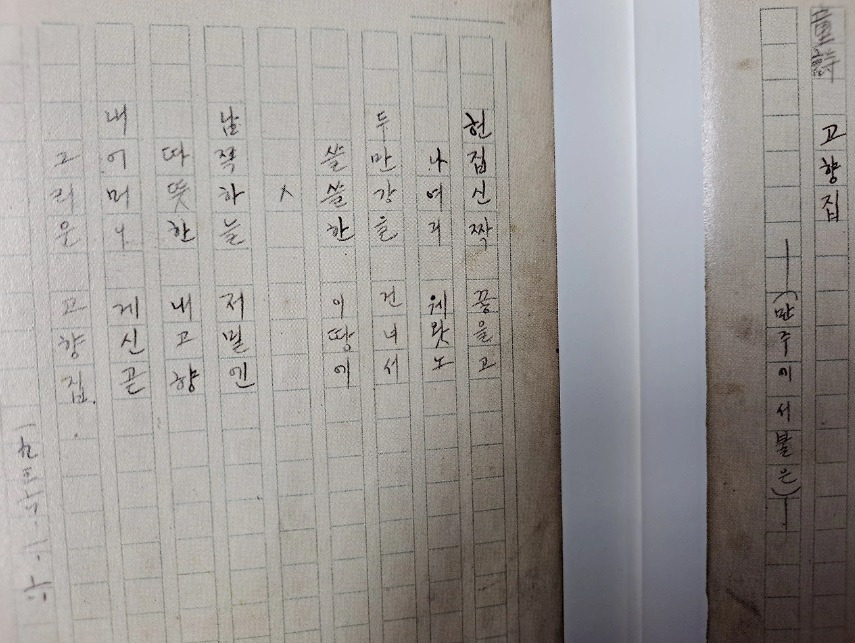 童詩 고향집
—(만주에서불은)—
헌집신짝 끟을고
나여긔 웨왓노
두만강을 건너서
쓸쓸한 이땅에
×
남쪽하늘 저밑엔
따뜻한 내고향
내어머니 게신곧
그리운 고향집.